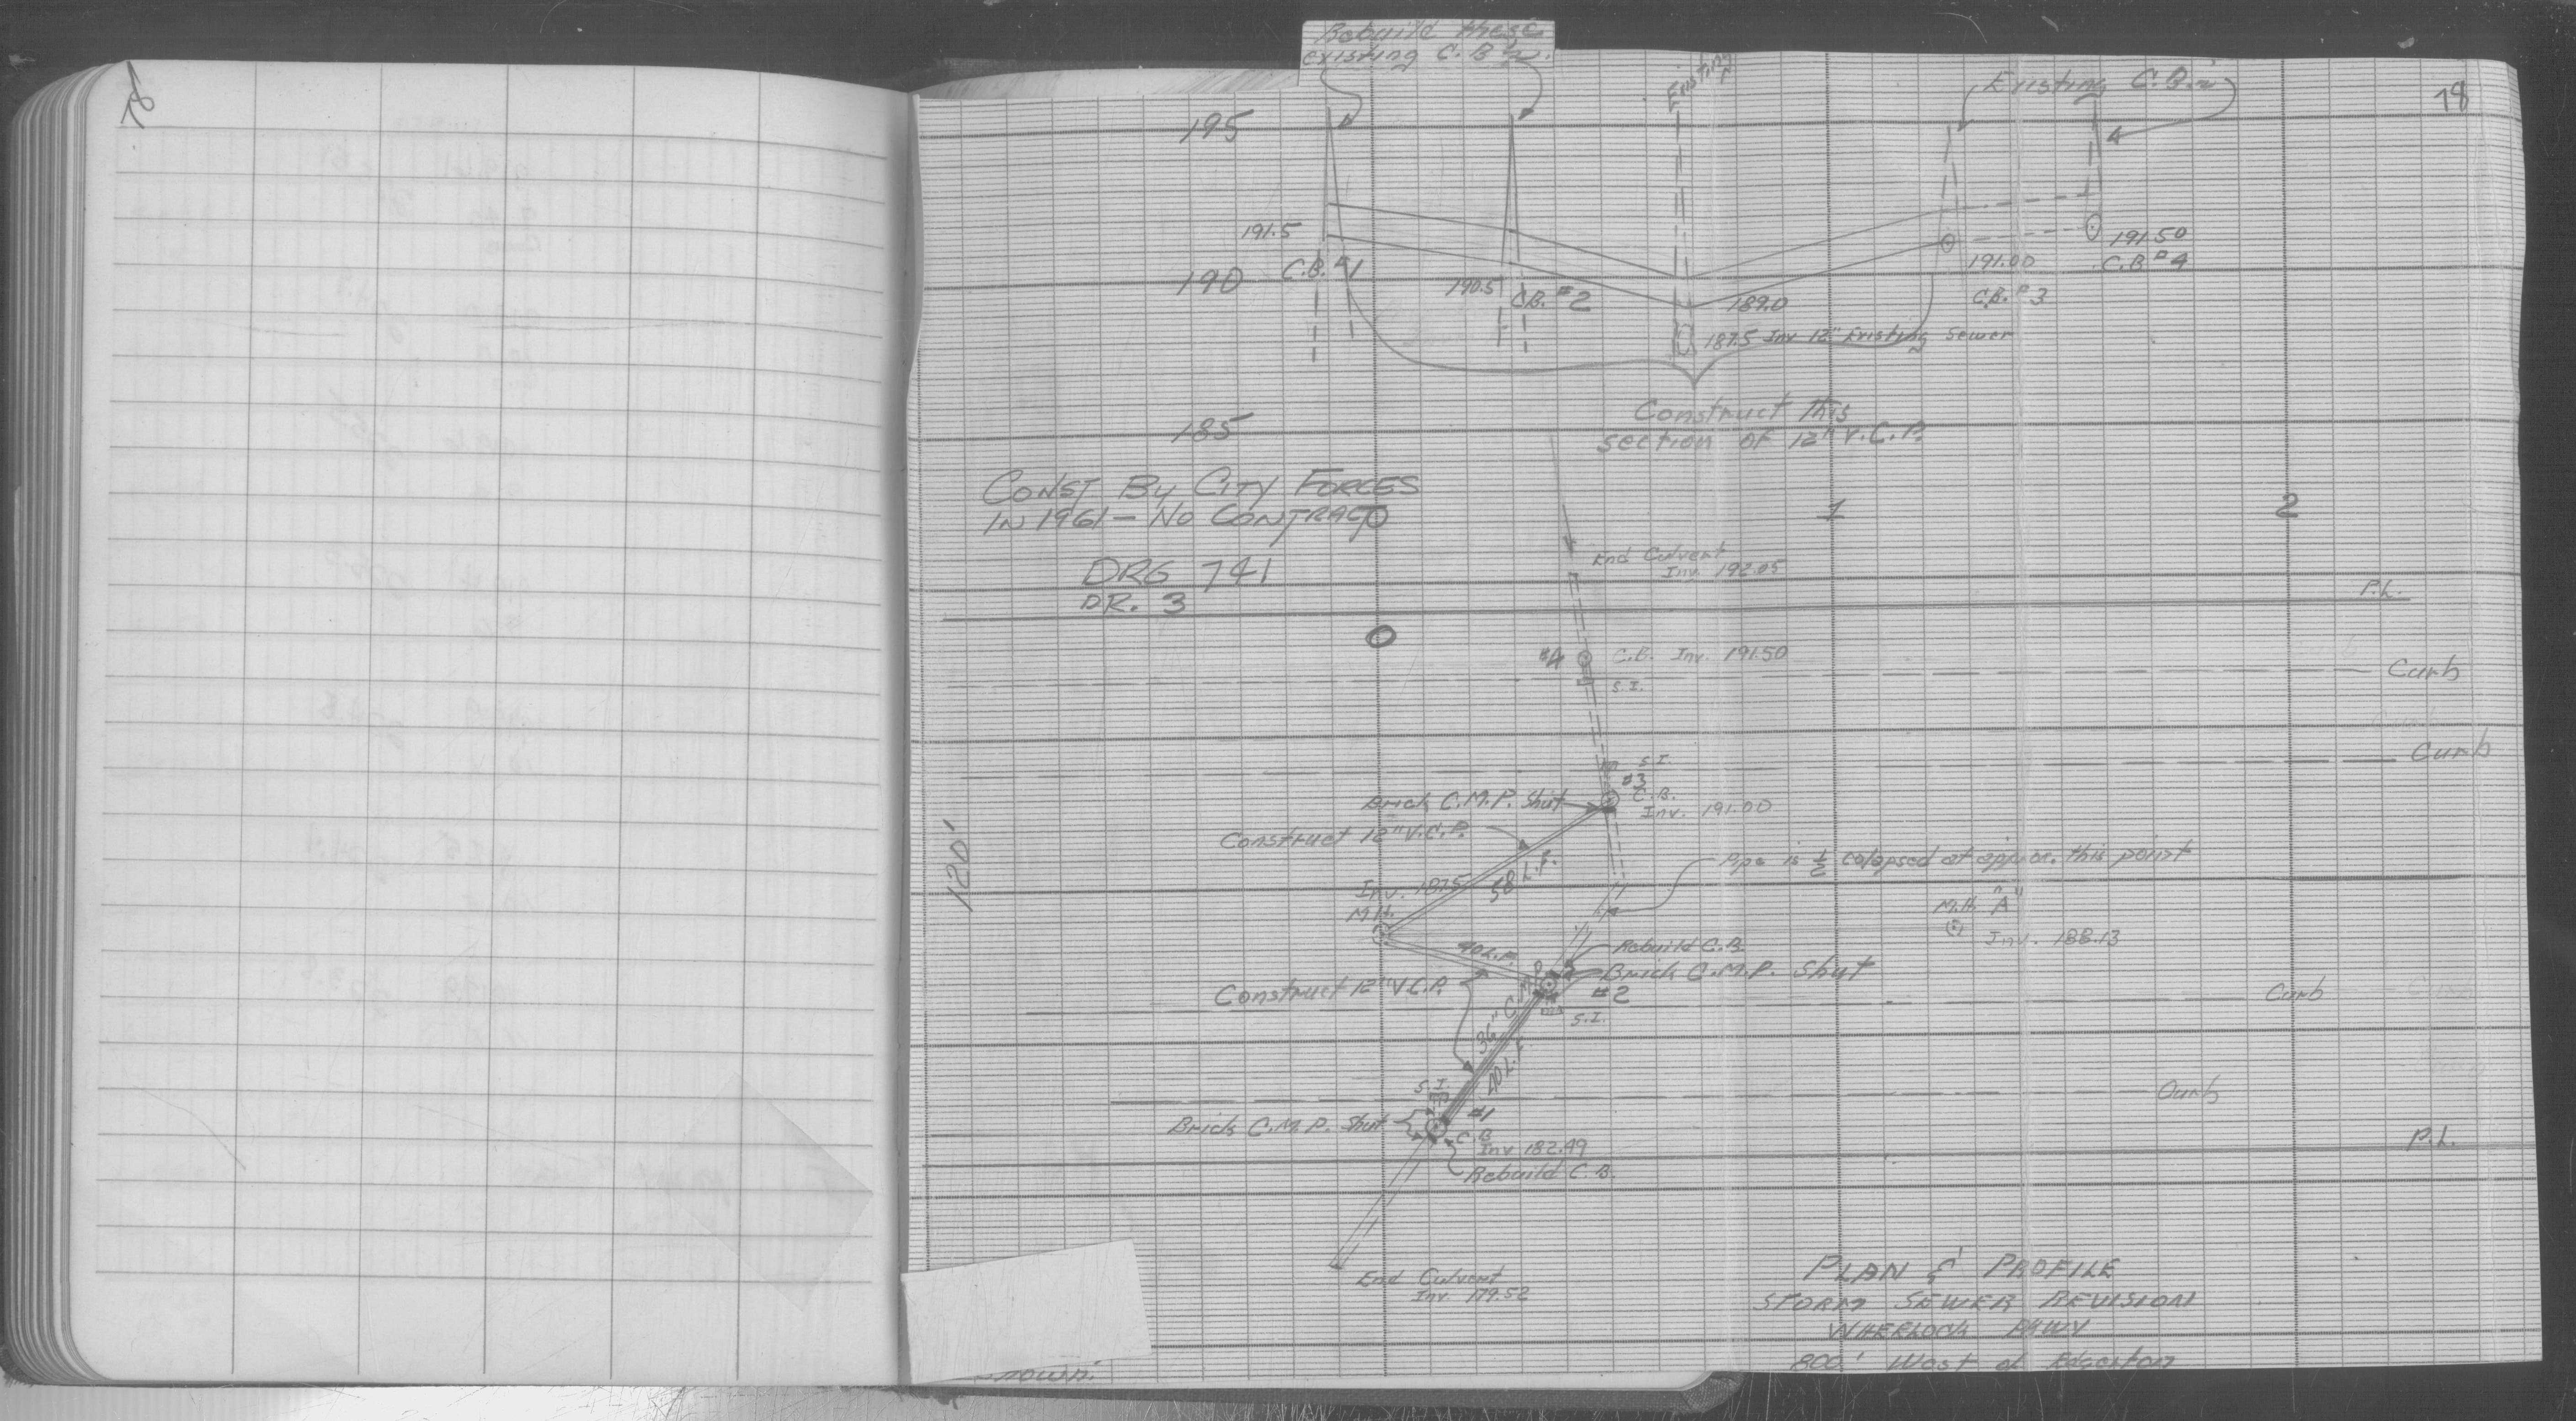 Rebuild these
existing C.B's.
Existing
Existing C.B.'s
78
195
191.5
C.B. #1
190
190.5
C.B. #2
189.0
191.00
C.B. #3
191.50
C.B. #4
187.5 Inv 12" Existing Sewer
185
Construct this
section of 12" V.C.P.
CONST BY CITY FORCES
IN 1961 - NO CONTRACT
0
1
2
DRG 741
DR. 3
End Culvert
Inv. 192.05
P.L.
0
#4
C.B. Inv. 191.50
S.I.
Curb
Curb
S.I.
#3
C.B.
Inv. 191.00
Brick C.M.P. Shut
Construct 12" V.C.P.
58 L.F.
120'
Pipe is ½ colapsed at approx. this point
Inv. 187.5
M.H.
M.H. "A"
Inv. 188.13
40 L.F.
Rebuild C.B.
Brick C.M.P. Shut
#2
S.I.
Construct 12" V.C.P.
Curb
36" C.M.P.
40 L.F.
S.I.
Curb
Brick C.M.P. Shut
#1
C.B.
Inv 182.49
Rebuild C.B.
P.L.
End Culvert
Inv. 179.52
PLAN & PROFILE
STORM SEWER REVISION
WHEELOCK PKWY
800' West of Edgerton